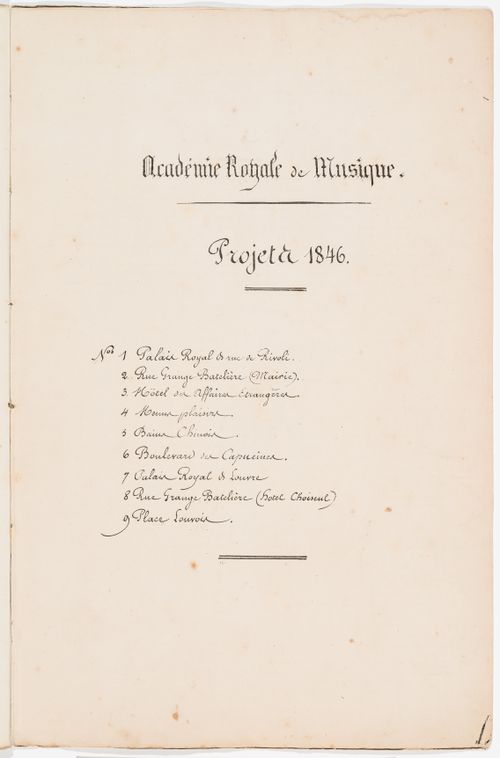 Académie Royale de Musique.
Projets 1846.
Nos 1 Palais Royal & rue de Rivoli.
2 Rue Grange Batelière (Mairie).
3 Hôtel des Affaires étrangères.
4 Menus plaisirs.
5 Bains Chinois.
6 Boulevard des Capucines.
7 Palais Royal & Louvre
8 Rue Grange Batelière (hotel Choiseul)
9 Place Louvois.